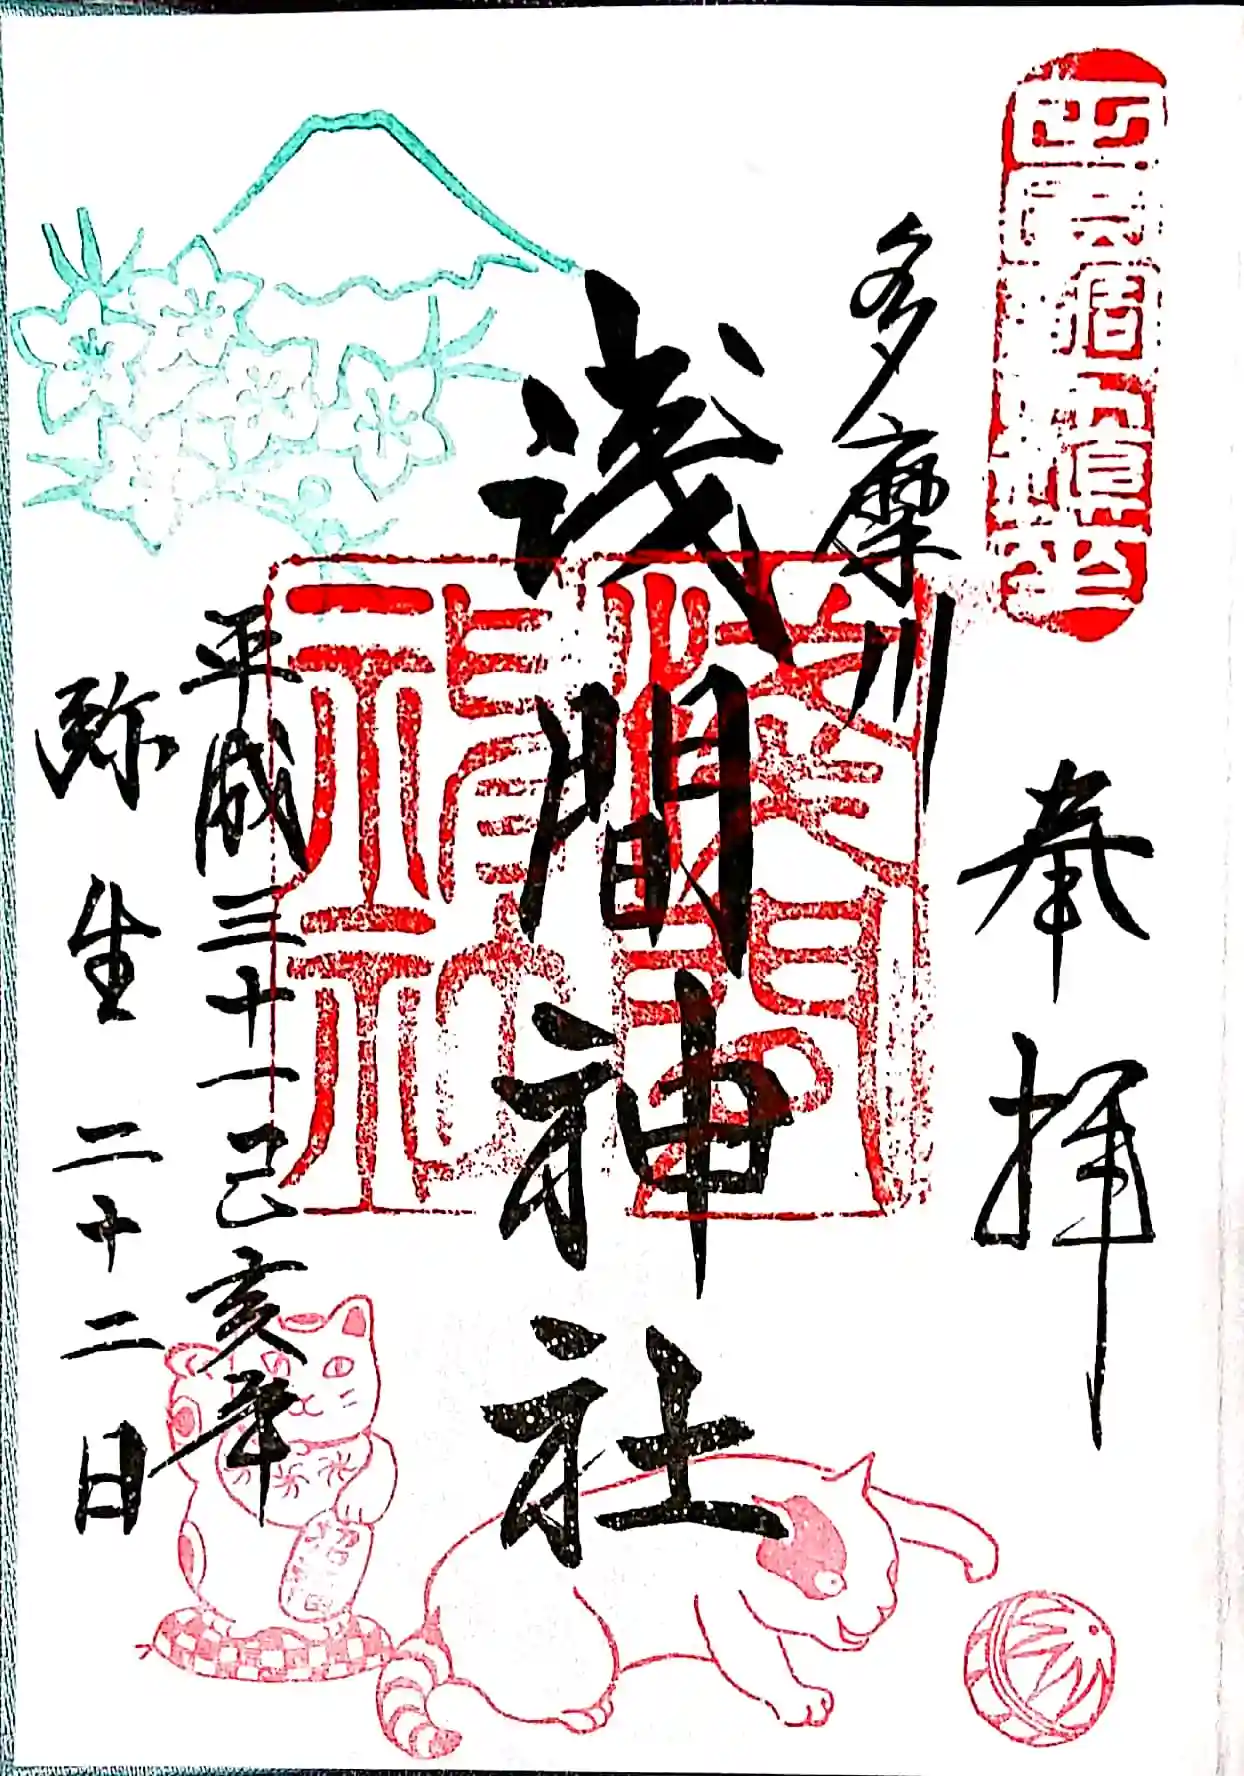 奉拝
多摩川
浅間神社
平成三十一己亥年
弥生 二十二日
浅間神社